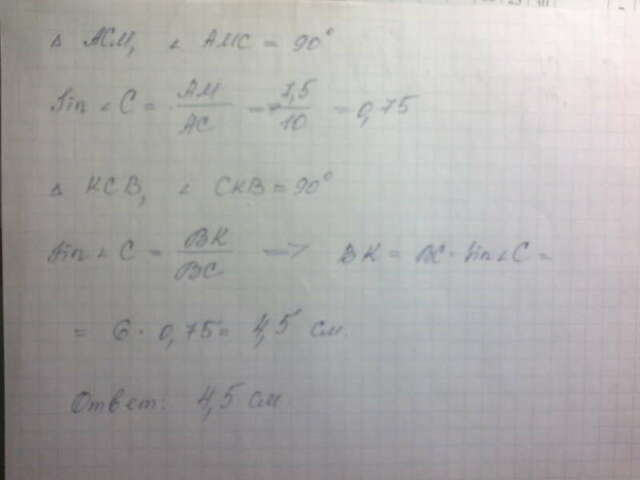 Δ ACM, ∠ AMC = 90°
Sin ∠ C = AM/AC = 7,5/10 = 0,75
Δ KCB, ∠ CKB = 90°
Sin ∠ C = BK/BC => BK = BC · Sin ∠ C =
= 6 · 0,75 = 4,5 см.
Ответ: 4,5 см